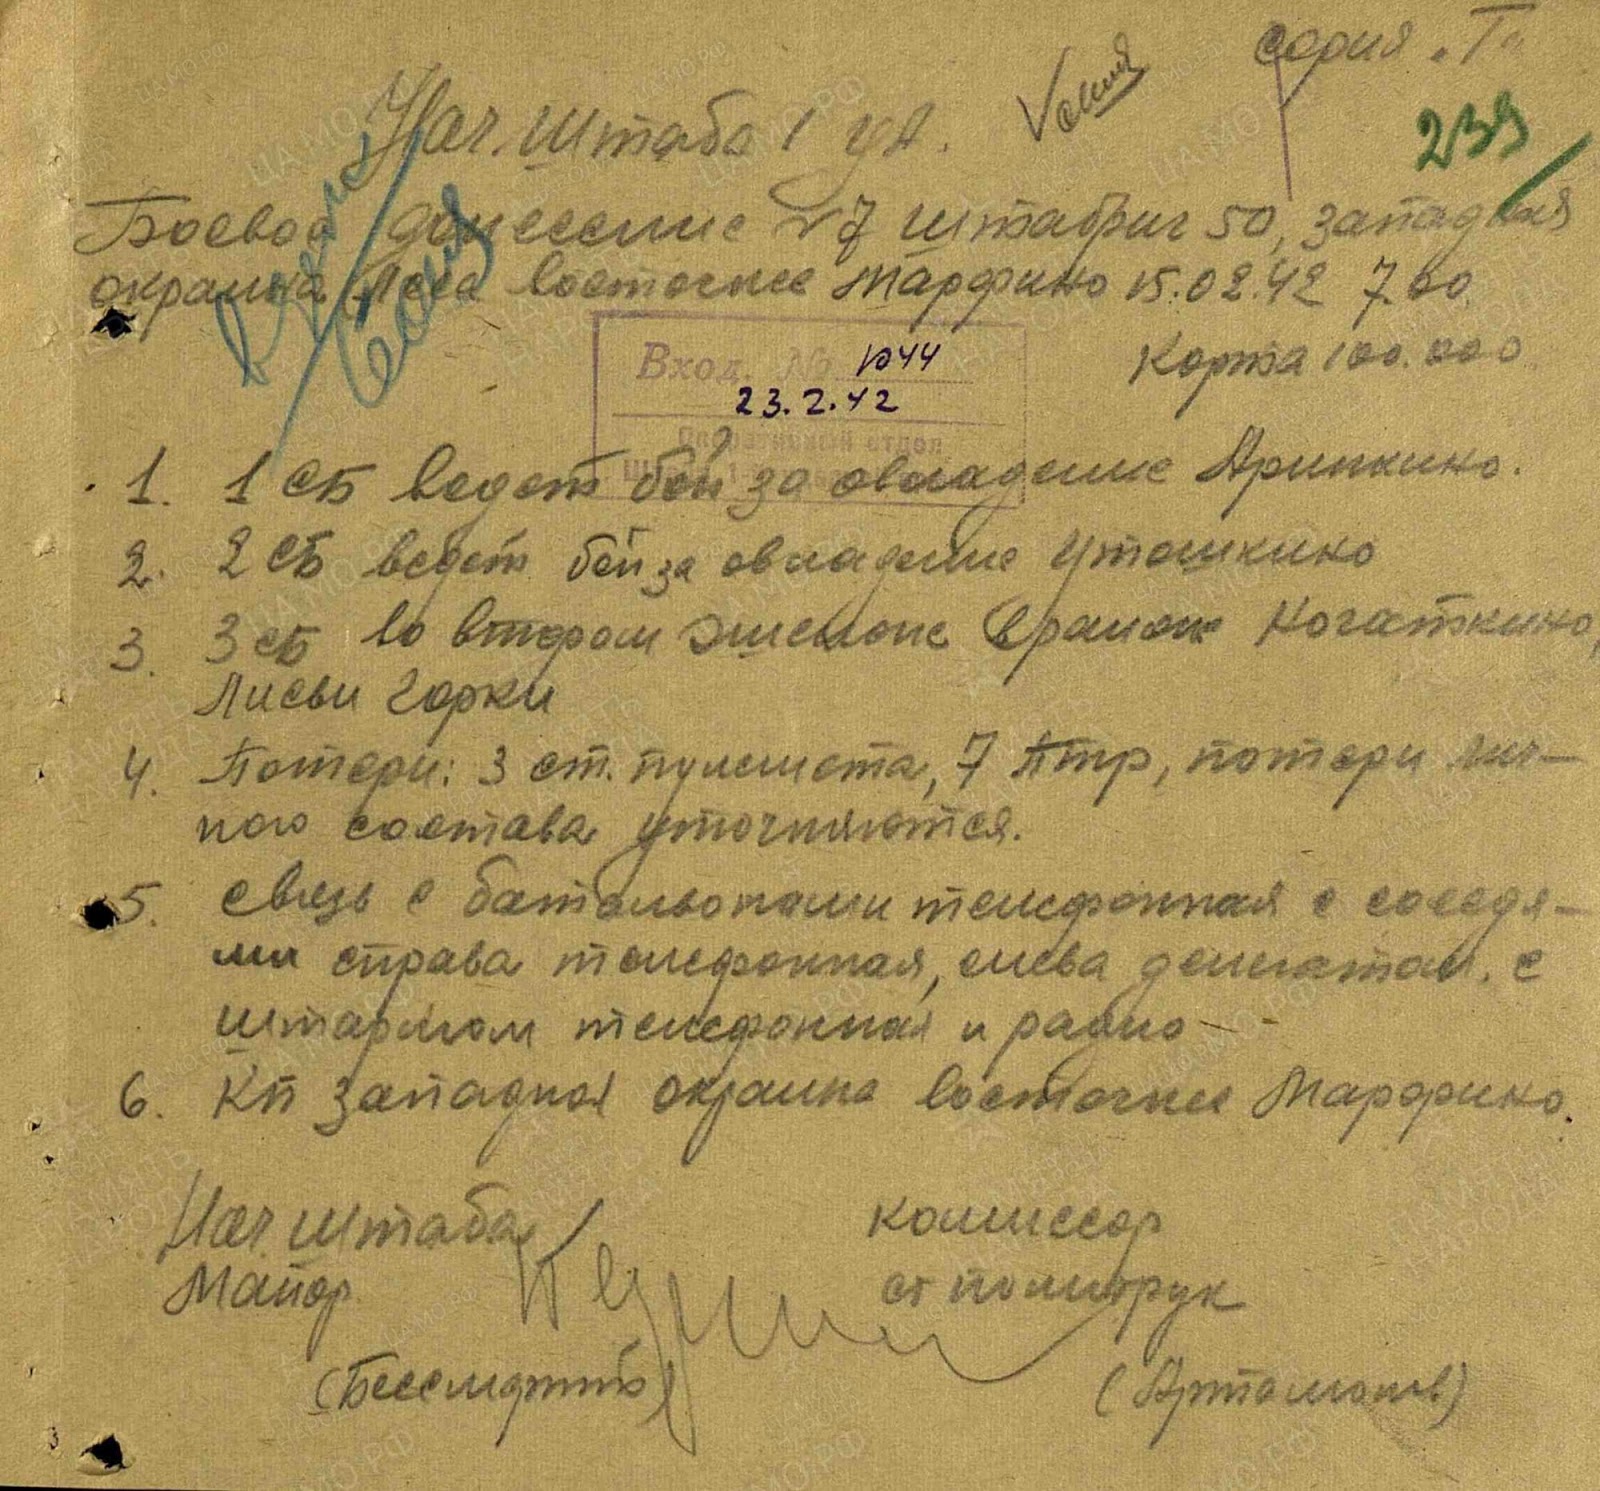 серия „Г“
Нач. Штаба 1 УА.
239
Боевое донесение №7 штабриг 50, западная
окраина леса восточнее Марфино 15.02.42 7.00
Карта 100.000
Вход. № 1044
23.2.42
Оперативный отдел
1. 1 сБ ведет бой за овладение Аринкино.
2. 2 сБ ведет бой за овладение Уташкино
3. 3 сБ во втором эшелоне в районе Когаткино,
Лисьи Горки
4. Потери: 3 ст. пулемета, 7 Птр, потери лич-
ного состава уточняются.
5. Связь с батальонами телефонная с соседя-
ми справа телефонная, слева делегатам. с
штармом телефонная и радио
6. КП западная окраина восточнее Марфино.
Нач. штаба
Майор
комиссар
ст политрук
(Бессмертный)
(Артамонов)